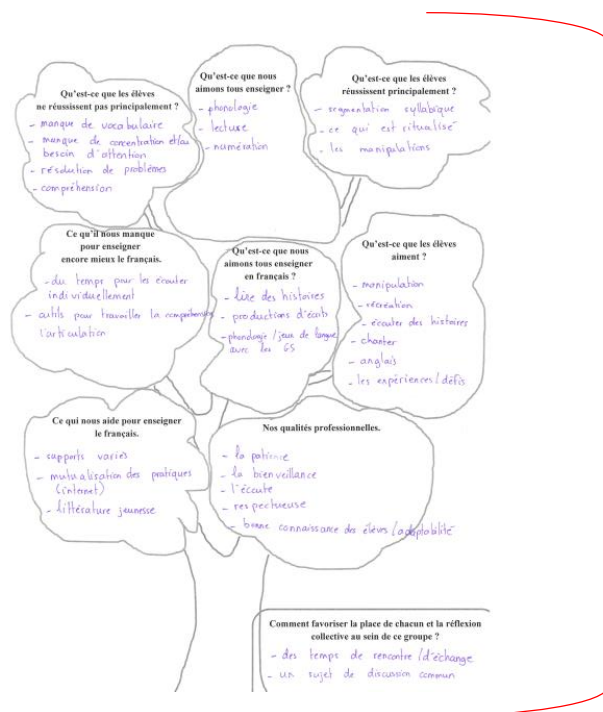 Qu'est-ce que les élèves
ne réussissent pas principalement ?
- manque de vocabulaire
- manque de concentration et/ou
besoin d'attention
- résolution de problèmes
- compréhension
Qu'est-ce que nous
aimons tous enseigner ?
- phonologie
- lecture
- numération
Qu'est-ce que les élèves
réussissent principalement ?
- segmentation syllabique
- ce qui est ritualisé
- les manipulations
Ce qu'il nous manque
pour enseigner
encore mieux le français.
- du temps pour les écouter
individuellement
- outils pour travailler la compréhension
l'articulation
Qu'est-ce que nous
aimons tous enseigner
en français ?
- lire des histoires
- productions d'écrits
- phonologie / jeux de langue
avec les GS
Qu'est-ce que les élèves
aiment ?
- manipulation
- récréation
- écouter des histoires
- chanter
- anglais
- les expériences / défis
Ce qui nous aide pour enseigner
le français.
- supports variés
- mutualisation des pratiques
(internet)
- littérature jeunesse
Nos qualités professionnelles.
- la patience
- la bienveillance
- l'écoute
- respectueuse
- bonne connaissance des élèves / adaptabilité
Comment favoriser la place de chacun et la réflexion
collective au sein de ce groupe ?
- des temps de rencontre / d'échange
- un sujet de discussion commun